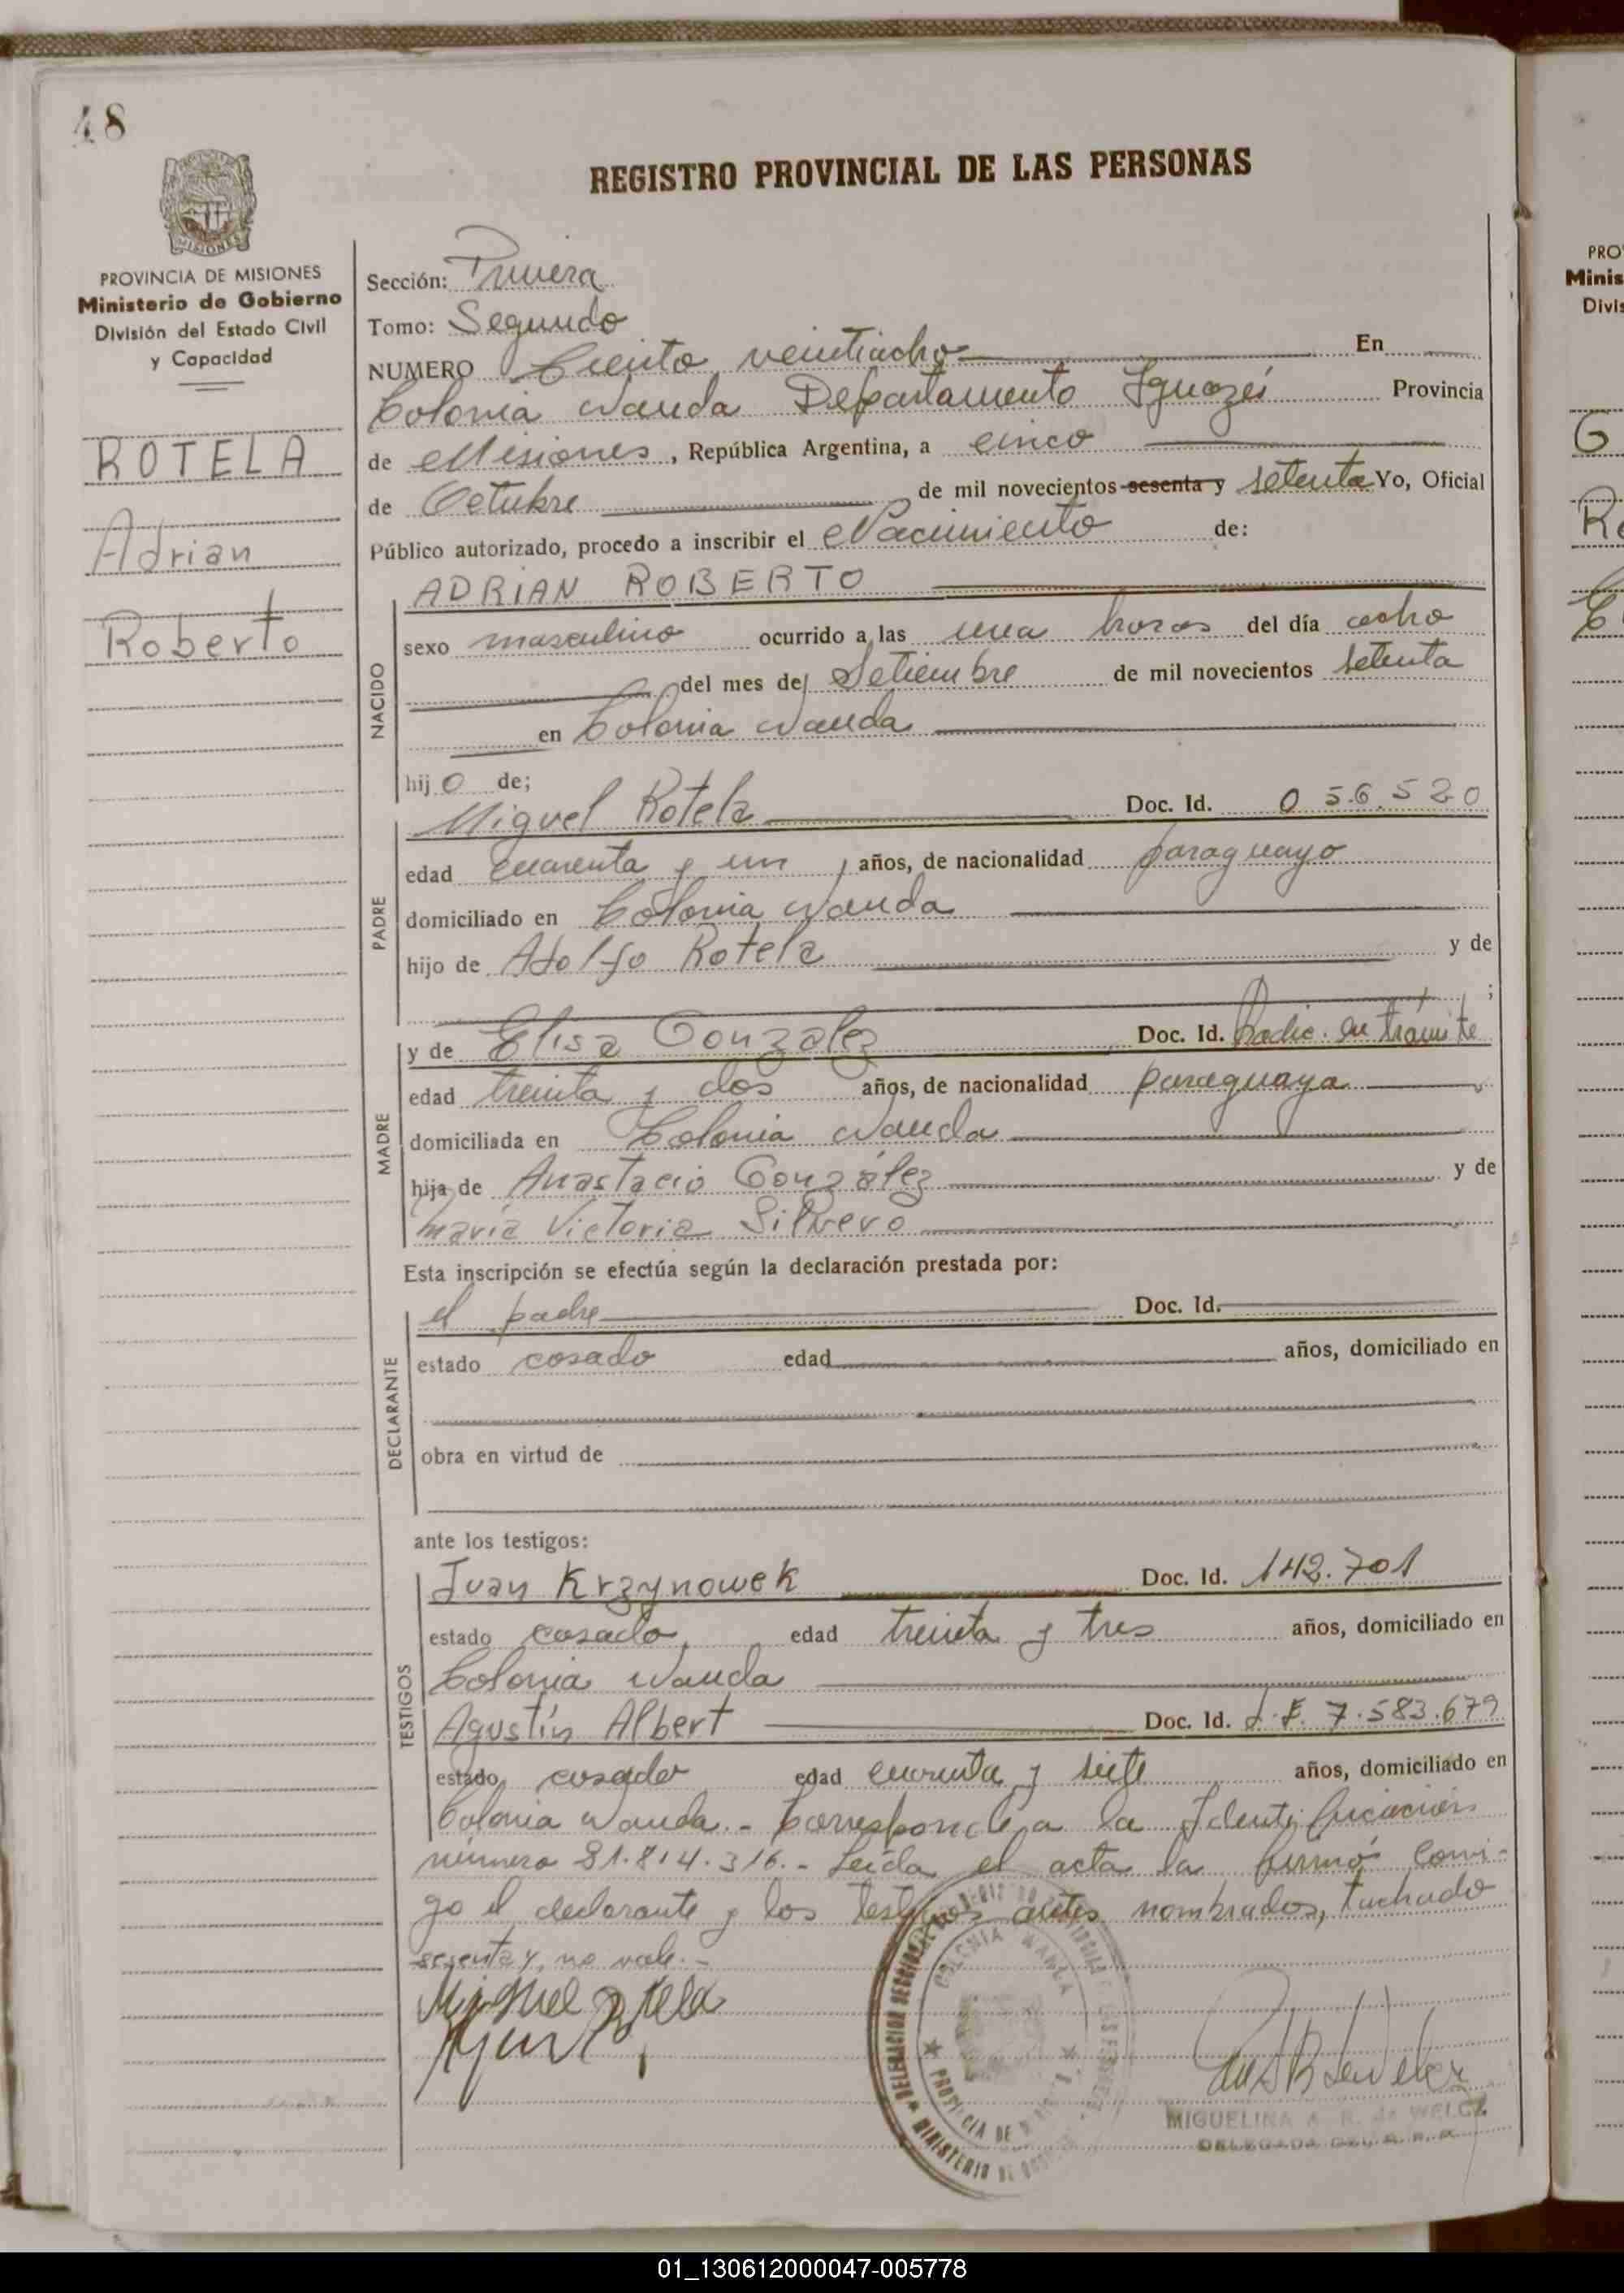 48
REGISTRO PROVINCIAL DE LAS PERSONAS
MISIONES
PROVINCIA DE MISIONES
Ministerio de Gobierno
División del Estado Civil
y Capacidad
ROTELA
Adrian
Roberto
Sección: Primera
Tomo: Segundo
NUMERO Ciento veintiocho En
Colonia Wanda Departamento Iguazú Provincia
de Misiones, República Argentina, a cinco
de Octubre de mil novecientos sesenta y setenta Yo, Oficial
Público autorizado, procedo a inscribir el Nacimiento de:
NACIDO
ADRIAN ROBERTO
sexo masculino ocurrido a las una horas del día ocho
del mes de Setiembre de mil novecientos setenta
en Colonia Wanda
hijo de;
PADRE
Miguel Rotela Doc. Id. 056.520
edad cuarenta y un años, de nacionalidad paraguayo
domiciliado en Colonia Wanda
hijo de Adolfo Rotela y de
;
MADRE
y de Elisa González Doc. Id. Radic. en trámite
edad treinta y dos años, de nacionalidad paraguaya
domiciliada en Colonia Wanda
hija de Anastacio González y de
María Victoria Silvero
Esta inscripción se efectúa según la declaración prestada por:
DECLARANTE
el padre Doc. Id.
estado casado edad años, domiciliado en
obra en virtud de
ante los testigos:
TESTIGOS
Juan Krzynowek Doc. Id. 142.701
estado casado, edad treinta y tres años, domiciliado en
Colonia Wanda
Agustín Albert Doc. Id. L.E. 7.583.679
estado casado edad cuarenta y siete años, domiciliado en
Colonia Wanda.- Corresponde a la Identificación
número 81.814.316.- Leída el acta la firmó conmi-
go el declarante y los testigos antes nombrados, tachado
sesenta y, no vale.-
Miguel Rotela
COLONIA WANDA
PROVINCIA DE MISIONES
MIGUELINA A. R. de WELCZ
DELEGADA DEL R. P. P.
PRO
Minis
Divis
G
R
01_130612000047-005778